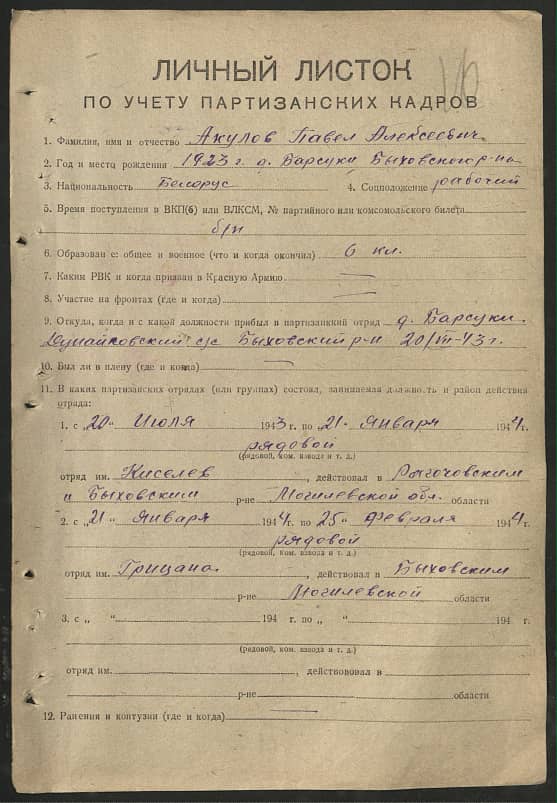 ЛИЧНЫЙ ЛИСТОК
ПО УЧЕТУ ПАРТИЗАНСКИХ КАДРОВ
1. Фамилия, имя и отчество Акулов Павел Алексеевич
2. Год и место рождения 1923 г. д. Барсуки Быховского р-на
3. Национальность Белорус 4. Соцположение рабочий
5. Время поступления в ВКП(б) или ВЛКСМ, № партийного или комсомольского билета
б/п
6. Образование: общее и военное (что и когда окончил) 6 кл.
7. Каким РВК и когда призван в Красную Армию —
8. Участие на фронтах (где и когда) —
9. Откуда, когда и с какой должности прибыл в партизанский отряд д. Барсуки
с/с Быховский р-н 20/VII-43 г.
10. Был ли в плену (где и когда) —
11. В каких партизанских отрядах (или группах) состоял, занимаемая должность и район действия
отряда:
1. с „20“ Июля 1943 г. по „21“ Января 1944 г.
рядовой
(рядовой, ком. взвода и т. д.)
отряд им. Киселев, действовал в
и Быховским р-не Могилевской обл. области
2. с „21“ Января 1944 г. по „25“ Февраля 1944 г.
рядовой
(рядовой, ком. взвода и т. д.)
отряд им. Грицана, действовал в Быховским
р-не Могилевской области
3. с „ “ 194 г. по „ “ 194 г.
(рядовой, ком. взвода и т. д.)
отряд им. , действововал в
р-не области
12. Ранения и контузии (где и когда) —